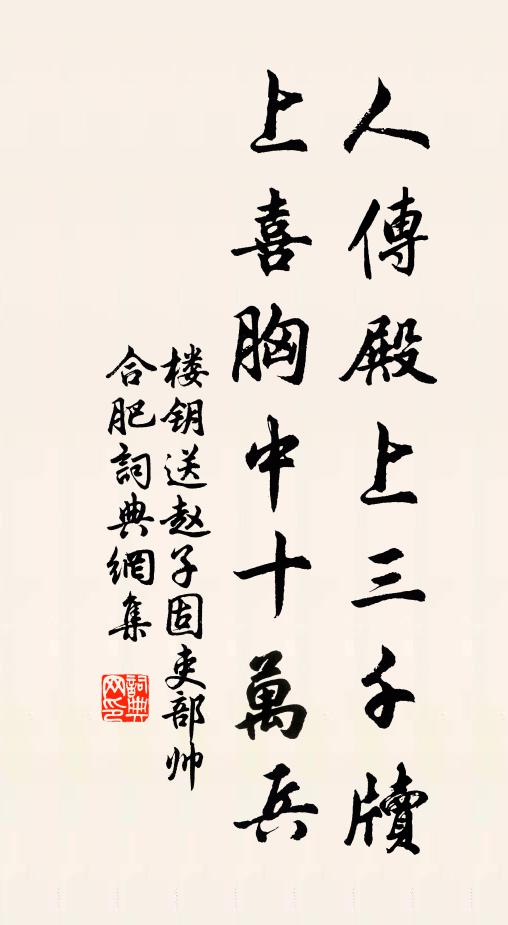 人傳殿上三千牘
上喜胸中十萬兵
楼钥送赵子固吏部帅
合肥詞典網集
詞典
网印